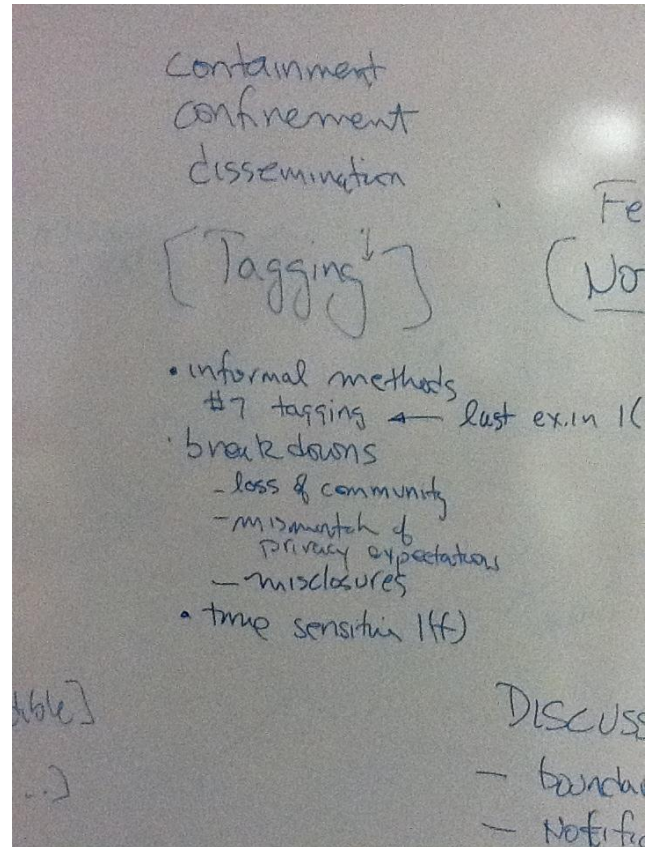 containment
confinement
dissemination
[Tagging↓]
• informal methods
#7 tagging ← last ex. in 1(
• breakdowns
- loss of community
- mismatch of
privacy expectations
- misclosures
• time sensitive 1(f)
Fe
(No
ible]
..]
DISCUSS
- bounda
- Notific